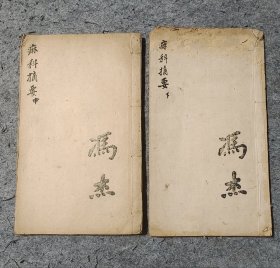 痳科摘要 中
馮杰
痳科摘要 下
馮杰